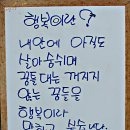 행복이란?
내안에 아직도
살아숨쉬며
꿈틀대는 꺼지지
않는 꿈들을
행복이라
말하고 싶습니다